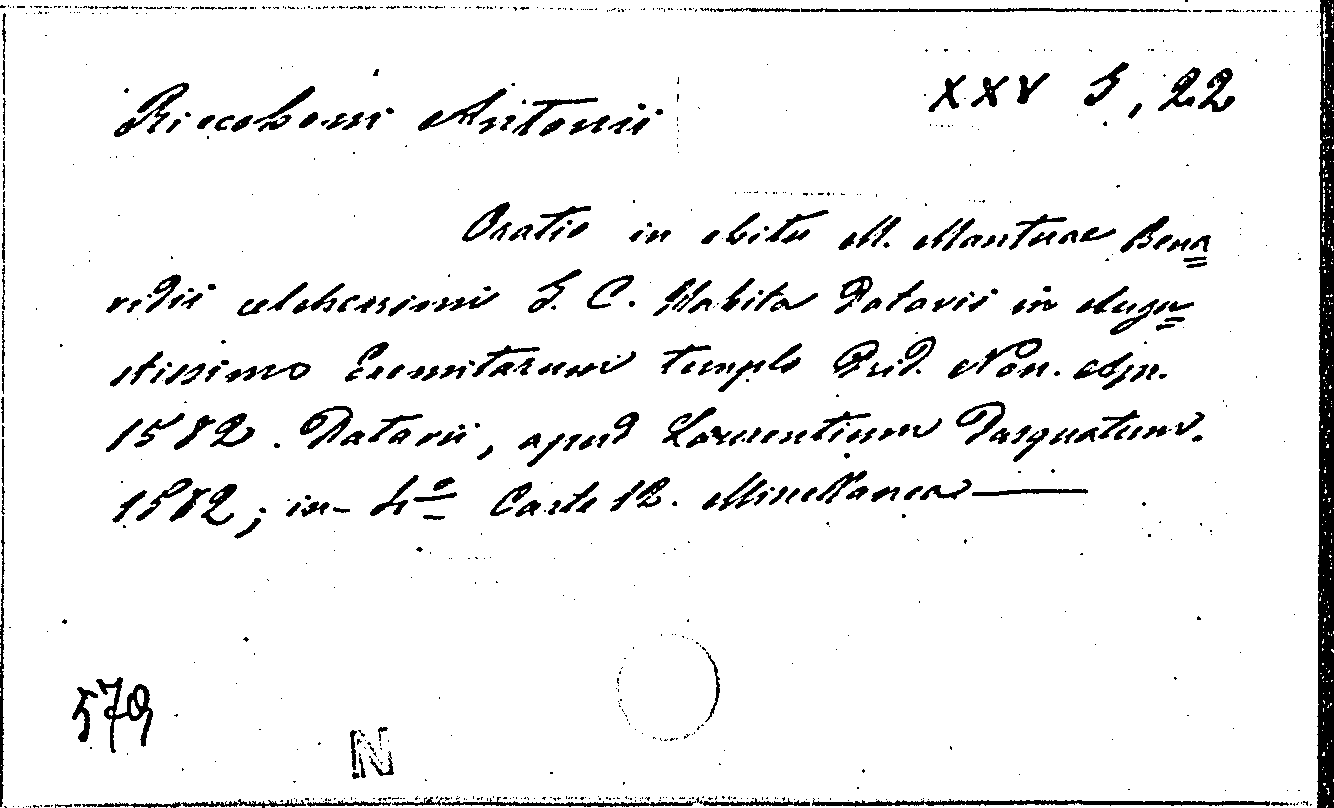 Riccoboni Antonii
XXV G, 22
Oratio in obitu M. Mantuae Bena=
vidii celeberrimi J. C. Habita Patavii in Augu=
stissimo Eremitarum templo Prid. Non. Apr.
1582. Patavii, apud Laurentium Pasquatum.
1582; in-4º Carte 12. Miscellanea
579
N